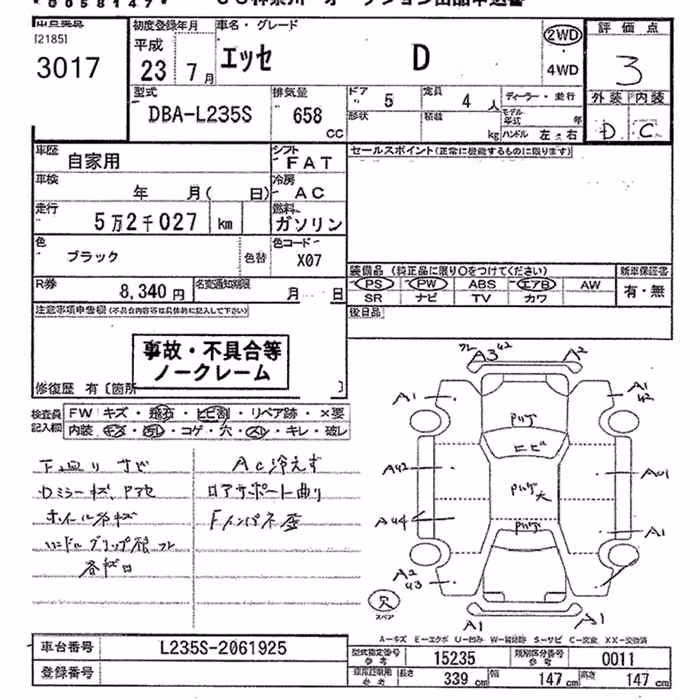 *0058147*
[2185]
3017
初度登録年月
平成
23年 7月
車名・グレード
エッセ D
2WD
4WD
評価点
3
外装 内装
D C
型式
DBA-L235S
排気量
658 CC
ドア 5
定員 4人
形状
積載 kg
ディーラー・並行
モデル年式 年
ハンドル 左・右
車歴
自家用
シフト FAT
セールスポイント(正常に機能するものに限ります)
車検 年 月( 日)
冷房 AC
走行
5万2千027 km
燃料
ガソリン
色
ブラック
色替
色コード
X07
R券 8,340円
名変通知期限 月 日
装備品(純正品に限り○をつけてください)
PS PW ABS エアB AW
SR ナビ TV カワ
新車保証書
有・無
後日品
注意事項申告欄(不具合内容等は具体的に記入して下さい)
事故・不具合等
ノークレーム
修復歴 有〔箇所 〕
検査員記入欄
FW キズ・飛石・ヒビ割・リペア跡・×要
内装 キズ・汚レ・コゲ・穴・スレ・キレ・破レ
下廻りサビ
AC冷えず
ホイールキズ
ロアサポート曲り
ハンドルグリップ
A3 42
A2
A1
A1 42
ヒビ
A42
大
A44
A1
A2 43
A1
A1
欠
スペア
A-キズ E-エクボ U-凹み W-補修跡 S-サビ C-腐食 XX-交換済
車台番号 L235S-2061925
登録番号
型式指定番号 参考 15235
類別区分番号 参考 0011
長さ 339 cm
幅 147 cm
高さ 147 cm